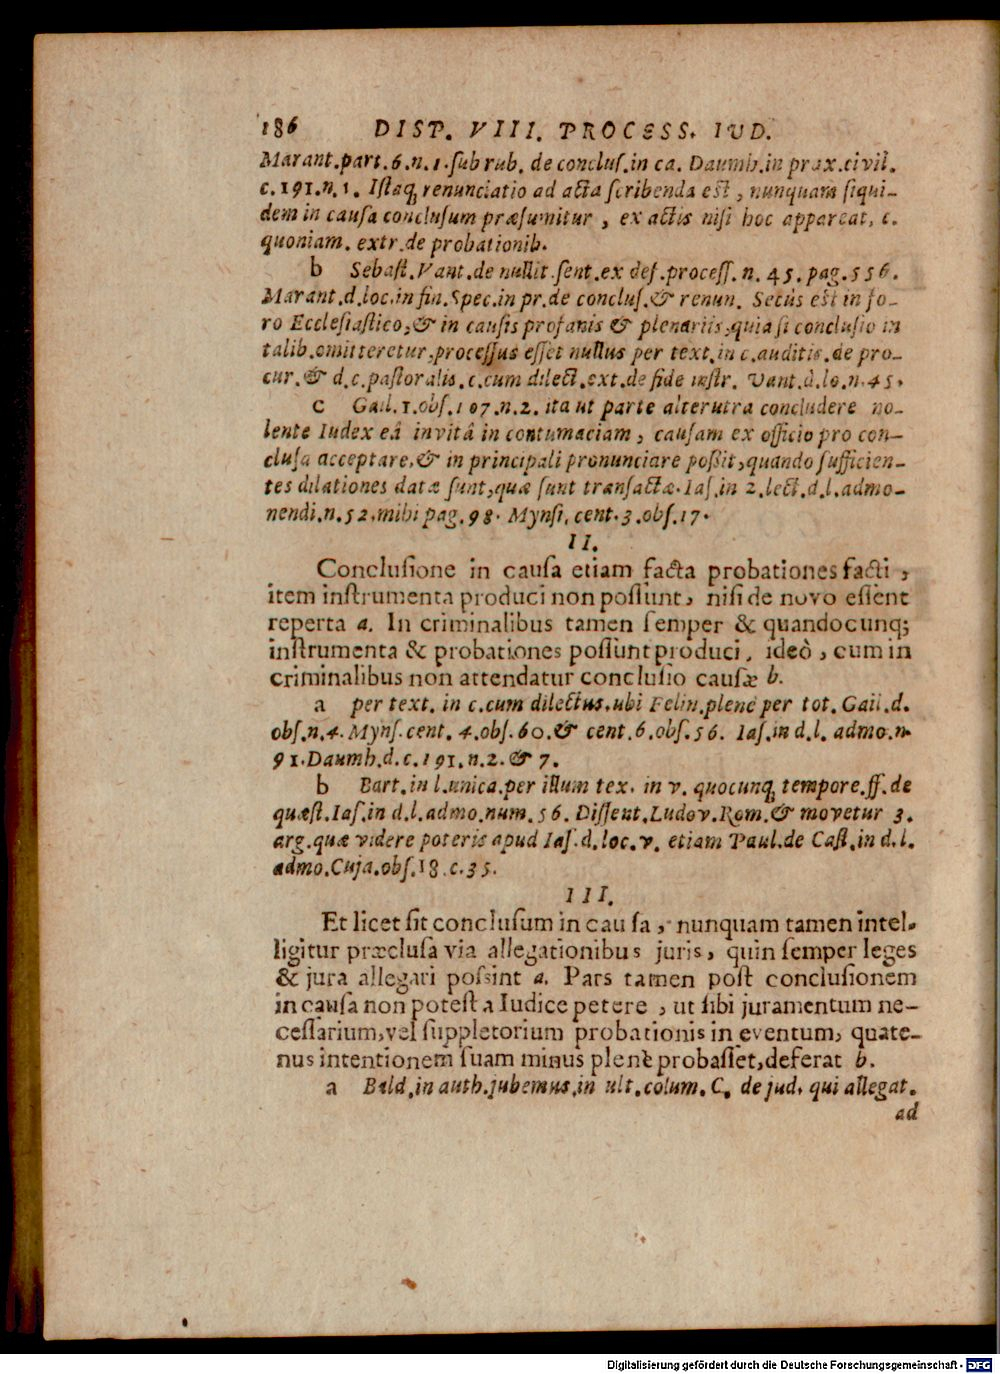 186 DIST. VIII. PROCESS. IUD.
Marant.part.6.n.1.ſub rub. de concluſ.in ca. Daumh.in prax.civil.
c.191.n.1. Iſtaq; renunciatio ad acta ſcribenda eſt, nunquam ſiqui-
dem in cauſa concluſum præſumitur, ex actis niſi hoc appareat, c.
quoniam. extr.de probationib.
b Sebaſt.Vant.de nullit.ſent.ex def.proceſſ. n. 45. pag.556.
Marant.d.loc.in fin.Spec.in pr.de concluſ.& renun. Secùs eſt in fo-
ro Eccleſiaſtico,& in cauſis profanis & plenariis,quia ſi concluſio in
talib.omitteretur,proceſſus eſſet nullus per text.in c.auditis.de pro-
cur.& d.c.paſtoralis.c.cum dilect.ext.de fide inſtr. Vant.d.lo.n.45.
c Gail.1.obſ.107.n.2. ita ut parte alterutra concludere no-
lente Iudex eâ invitâ in contumaciam, cauſam ex officio pro con-
cluſa acceptare,& in principali pronunciare poßit,quando ſufficien-
tes dilationes datæ ſunt,quæ ſunt tranſactæ.Iaſ.in 2.lect.d.l.admo-
nendi.n.52.mihi pag.98. Mynſi.cent.3.obſ.17.
II.
Concluſione in cauſa etiam facta probationes facti,
item inſtrumenta produci non poſſunt, niſi de novo eſſent
reperta a. In criminalibus tamen ſemper & quandocunq;
inſtrumenta & probationes poſſunt produci, ideò, cum in
criminalibus non attendatur concluſio cauſæ b.
a per text. in c.cum dilectus.ubi Felin.plenè per tot. Gail.d.
obſ.n.4.Mynſ.cent. 4.obſ.60.& cent.6.obſ.56. Iaſ.in d.l. admo.n.
91.Daumh.d.c.191.n.2.& 7.
b Bart.in l.unica.per illum tex. in v. quocunq; tempore.ff.de
quæſt.Iaſ.in d.l.admo.num.56. Diſſent.Ludov.Rom.& movetur 3.
arg.quæ videre poteris apud Iaſ.d.loc.v. etiam Paul.de Caſt.in d.l.
admo.Cuja.obſ.18.c.35.
III.
Et licet ſit concluſum in cauſa, nunquam tamen intel-
ligitur præcluſa via allegationibus juris, quin ſemper leges
& jura allegari poſsint a. Pars tamen poſt concluſionem
in cauſa non poteſt a Iudice petere, ut ſibi juramentum ne-
ceſſarium,vel ſuppletorium probationis in eventum, quate-
nus intentionem ſuam minus plenè probaſſet,deferat b.
a Bald.in auth.jubemus.in ult.colum.C. de jud. qui allegat.
ad
Digitalisierung gefördert durch die Deutsche Forschungsgemeinschaft - DFG